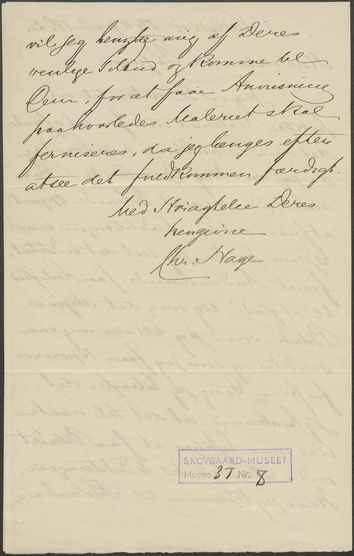 vil jeg benytte mig af Deres
venlige Tilbud og komme til
Dem, for at faae Anvisning
paa hvorledes Maleriet skal
ferniseres, da jeg længes efter
at see det fuldkommen færdigt.
Med Høiagtelse Deres
hengivne
Chr. Hage
SKOVGAARD-MUSEET
37 Nr. 8